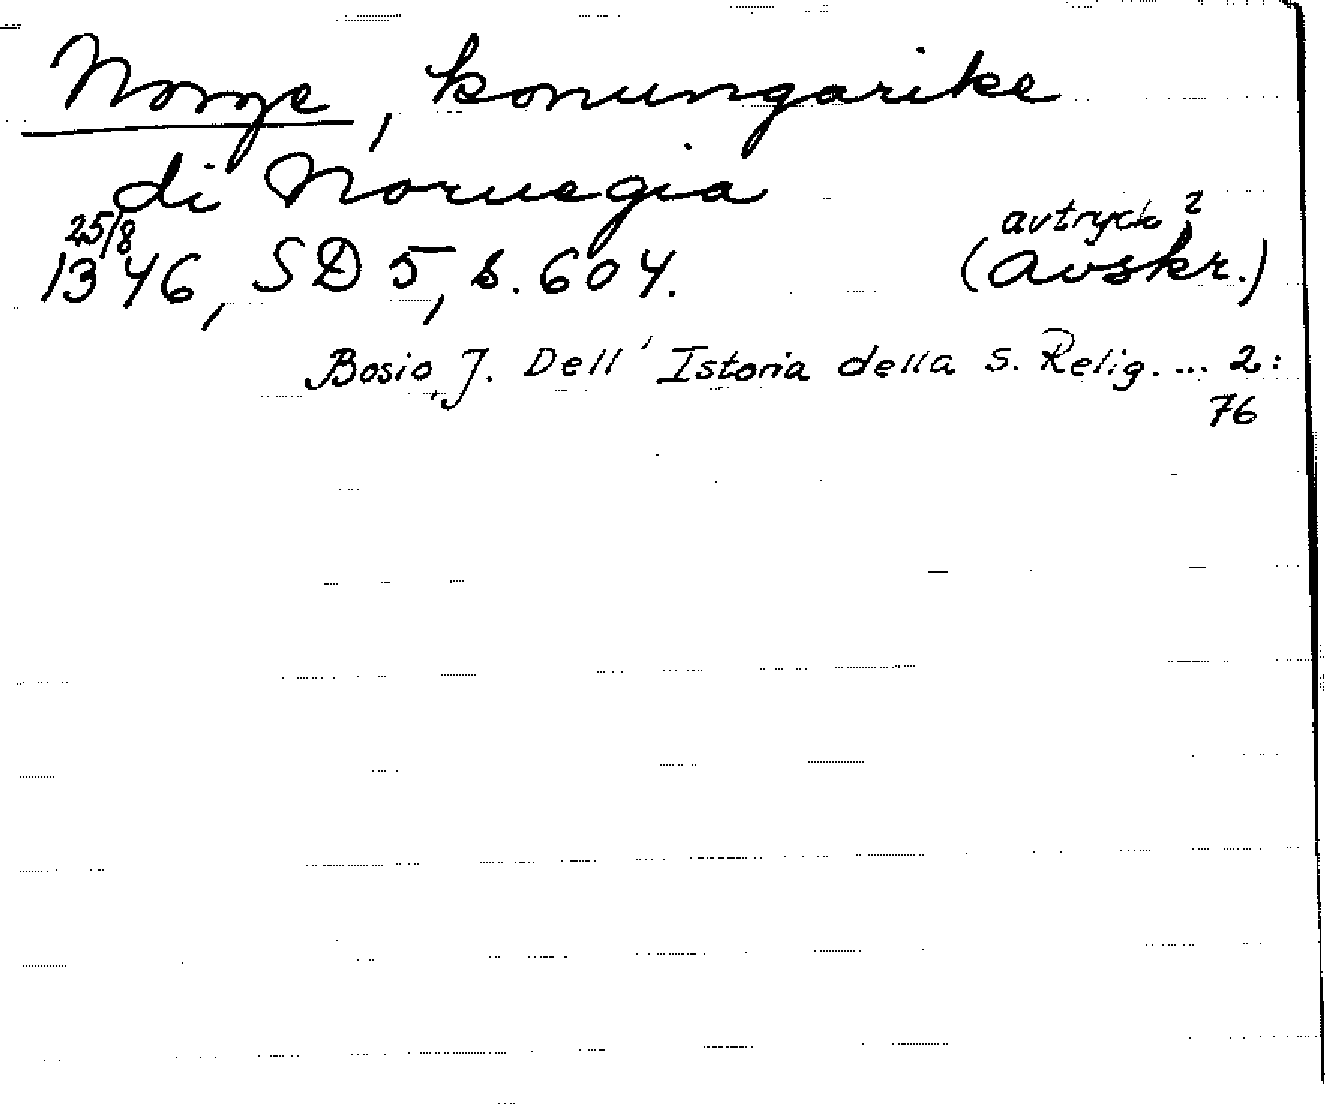 Norge, konungarike
di Noruegia
25/8 avtryck?
1346, SD 5, s. 604. (Avskr.)
Bosio, J. Dell' Istoria della S. Relig. ... 2:
76